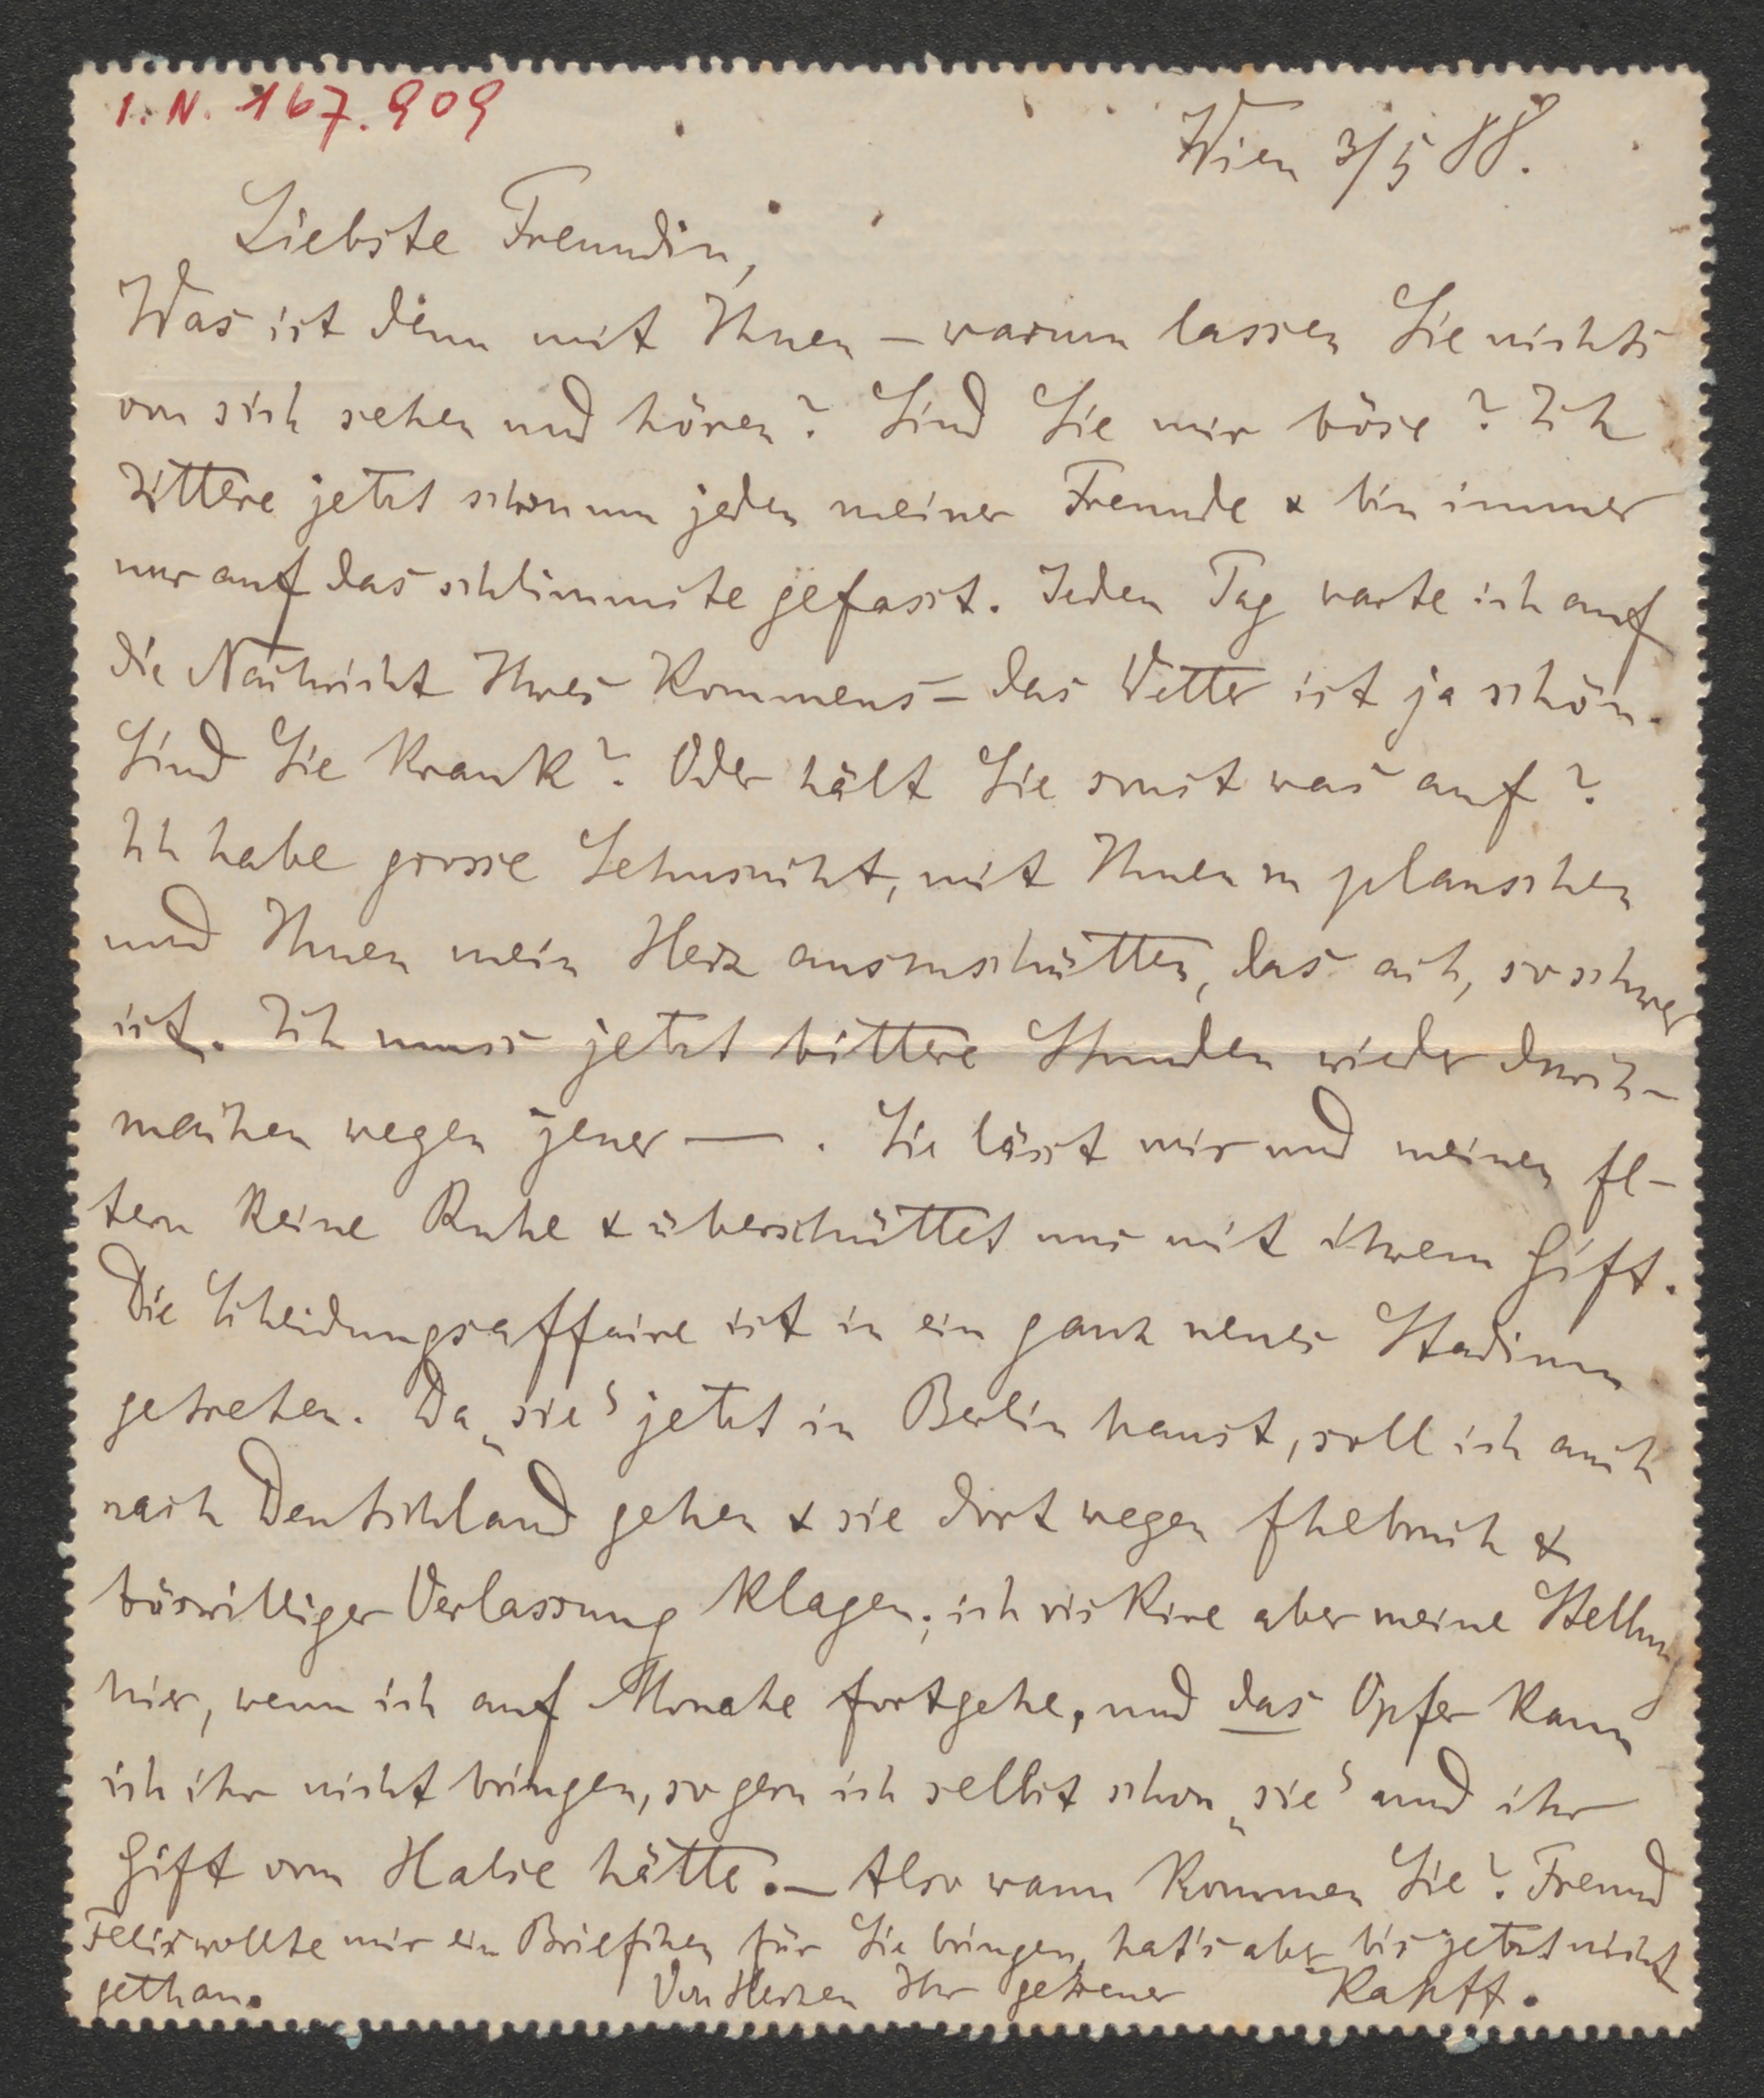 I.N. 167.909
Wien 3/5 88.
Liebste Freundin,
Was ist denn mit Ihnen – warum lassen Sie nichts
von sich sehen und hören? Sind Sie mir böse? Ich
zittere jetzt schon um jeden meiner Freunde & bin immer
nur auf das schlimmste gefasst. Jeden Tag warte ich auf
die Nachricht Ihres Kommens – das Wetter ist ja schön.
Sind Sie krank? Oder hält Sie sonst was auf?
Ich habe grosse Sehnsucht, mit Ihnen zu plauschen
und Ihnen mein Herz auszuschütten, das ach, so schwer
ist. Ich muss jetzt bittere Stunden wieder durch-
machen wegen jener —. Sie lässt mir und meinen El-
tern keine Ruhe & überschüttet uns mit ihrem Gift.
Die Scheidungsaffaire ist in ein ganz neues Stadium
getreten. Da „sie“ jetzt in Berlin haust, soll ich auch
nach Deutschland gehen & sie dort wegen Ehebruch &
böswilliger Verlassung klagen; ich riskire aber meine Stellung
hier, wenn ich auf Monate fortgehe, und das Opfer kann
ich ihr nicht bringen, so gern ich selbst schon „sie“ und ihr
Gift vom Halse hätte. – Also wann kommen Sie? Freund
Felix wollte mir ein Briefchen für Sie bringen, hat's aber bis jetzt nicht
gethan. Von Herzen Ihr getreuer